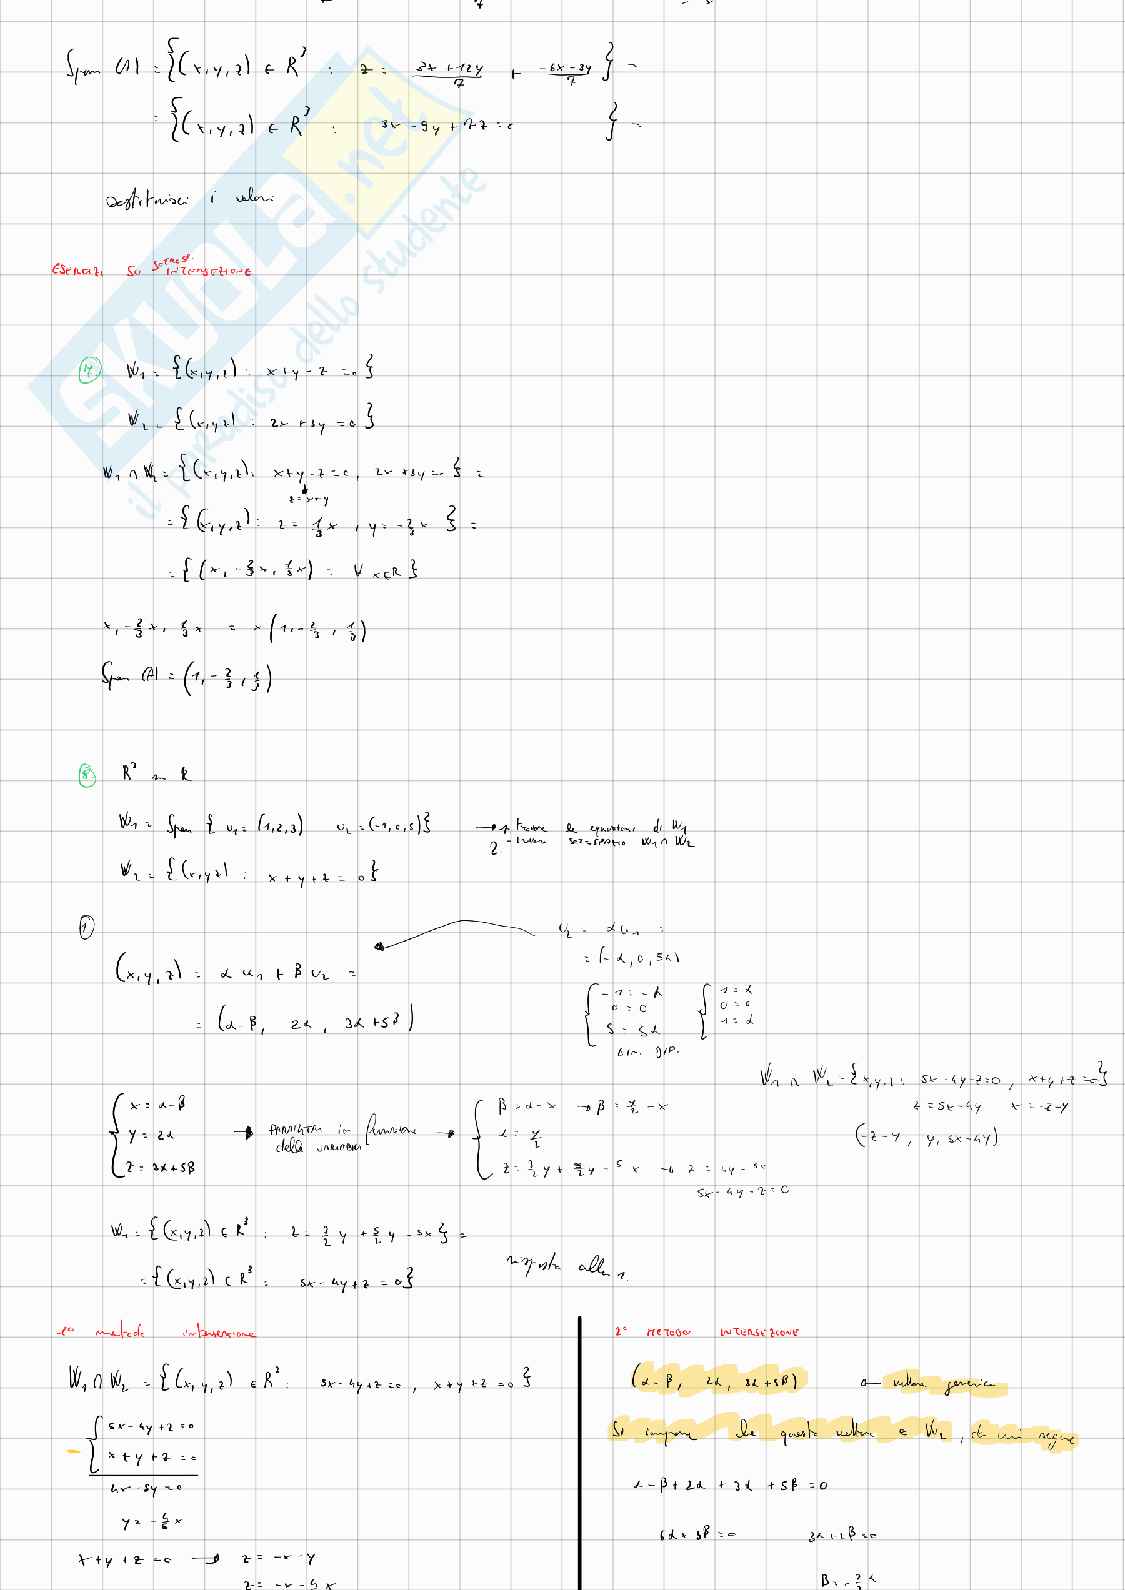 Span (A) = {(x,y,z) ∈ R³ : z = (3x+12y)/7 + (-6x-3y)/7} =
= {(x,y,z) ∈ R³ : 3x-9y+7z=0} =
sostituisci i valori
ESERCIZI SU SOTTOSP. INTERSEZIONE
W₁ = {(x,y,z) : x+y-z=0}
W₂ = {(x,y,z) : 2x+3y=0}
W₁ ∩ W₂ = {(x,y,z): x+y-z=0, 2x+3y=} =
z=x+y
= {(x,y,z): z = 1/3 x, y = -2/3 x} =
= {(x, -2/3 x, 1/3 x) : ∀ x∈R}
x, -2/3 x, 1/3 x = x(1, -2/3, 1/3)
Span (A) = (1, -2/3, 1/3)
8 R³ su R
W₁ = Span {u₁=(1,2,3) u₂=(-1,0,5)} → 1 trovare le equazioni di W₁
2 - trovare SOTTOSPAZIO W₁ ∩ W₂
W₂ = {(x,y,z) : x+y+z=0}
1
u₂ = αu₁ =
= (-α,0,5α)
(x,y,z) = αu₁ + βu₂ =
= (α-β, 2α, 3α+5β)
{-1=-α {1=α
0=0 0=0
5=5α 1=α
LIN. DIP.
W₁ ∩ W₂ = {x,y,z: 5x-4y-z=0, x+y+z=0}
z=5x-4y x=-z-y
(-z-y, y, 5x-4y)
{x=α-β
y=2α
z=3α+5β
→ PARAMETRI in funzione della variabili →
{β=α-x → β=y/2-x
α=y/2
z=3/2 y+5/2 y-5x → z=4y-5x
5x-4y-z=0
W₁ = {(x,y,z) ∈ R³ : z = 3/2 y + 5/2 y - 5x} =
= {(x,y,z) ∈ R³ : 5x-4y+z=0}
risposta alla 1.
1° metodo intersezione
W₁ ∩ W₂ = {(x,y,z) ∈ R³ : 5x-4y+z=0, x+y+z=0}
{5x-4y+z=0
- x+y+z=0
4x-5y=0
x+y+z=0 → z=-x-y
2° METODO INTERSEZIONE
(α-β, 2α, 3α+5β) ← vettore generico
Si impone che questo vettore ∈ W₂, da cui segue
α-β+2α+3α+5β=0